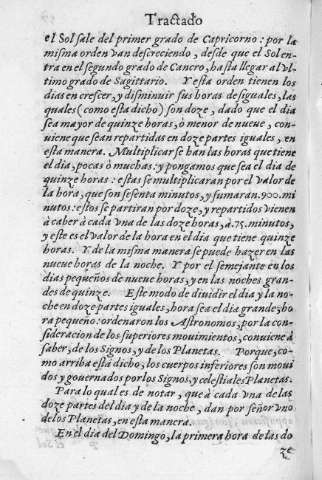 Tractado
el Sol sale del primer grado de Capricorno : por la
misma orden van descreciendo, desde que el Sol en-
tra en el segundo grado de Cancro, hasta llegar al vl-
timo grado de Sagittario. Y esta orden tienen los
dias en crescer, y disminuir sus horas desiguales, las
quales (como esta dicho) son doze, dado que el dia
sea mayor de quinze horas, ò menor de nueue, con-
uiene que sean repartidas en doze partes iguales, en
esta manera. Multiplicar se han las horas que tiene
el dia, pocas ò muchas: y pongamos que sea el dia de
quinze horas : estas se multiplicaran por el valor de
la hora, que son sesenta minutos, y sumaran .900. mi
nutos: estos se partiran por doze, y repartidos vienen
à caber à cada vna de las doze horas, a .75. minutos,
y este es el valor de la hora en el dia que tiene quinze
horas. Y de la misma manera se puede hazer en las
nueue horas de la noche. Y por el semejante en los
dias pequeños de nueue horas, y en las noches gran-
des de quinze. Este modo de diuidir el dia y la no-
che en doze partes iguales, hora sea el dia grande, ho
ra pequeno: ordenaron los Astronomos, por la con-
sideracion de los superiores mouimientos, conuiene à
saber, de los Signos, y de los Planetas. Porque, co-
mo arriba està dicho, los cuerpos inferiores son moui
dos y gouernados por los Signos, y celestiales Planetas.
Para lo qual es de notar, que à cada vna de las
doze partes del dia y de la noche, dan por señor vno
de los Planetas, en esta manera.
En el dia del Domingo, la primera hora de las do
ze